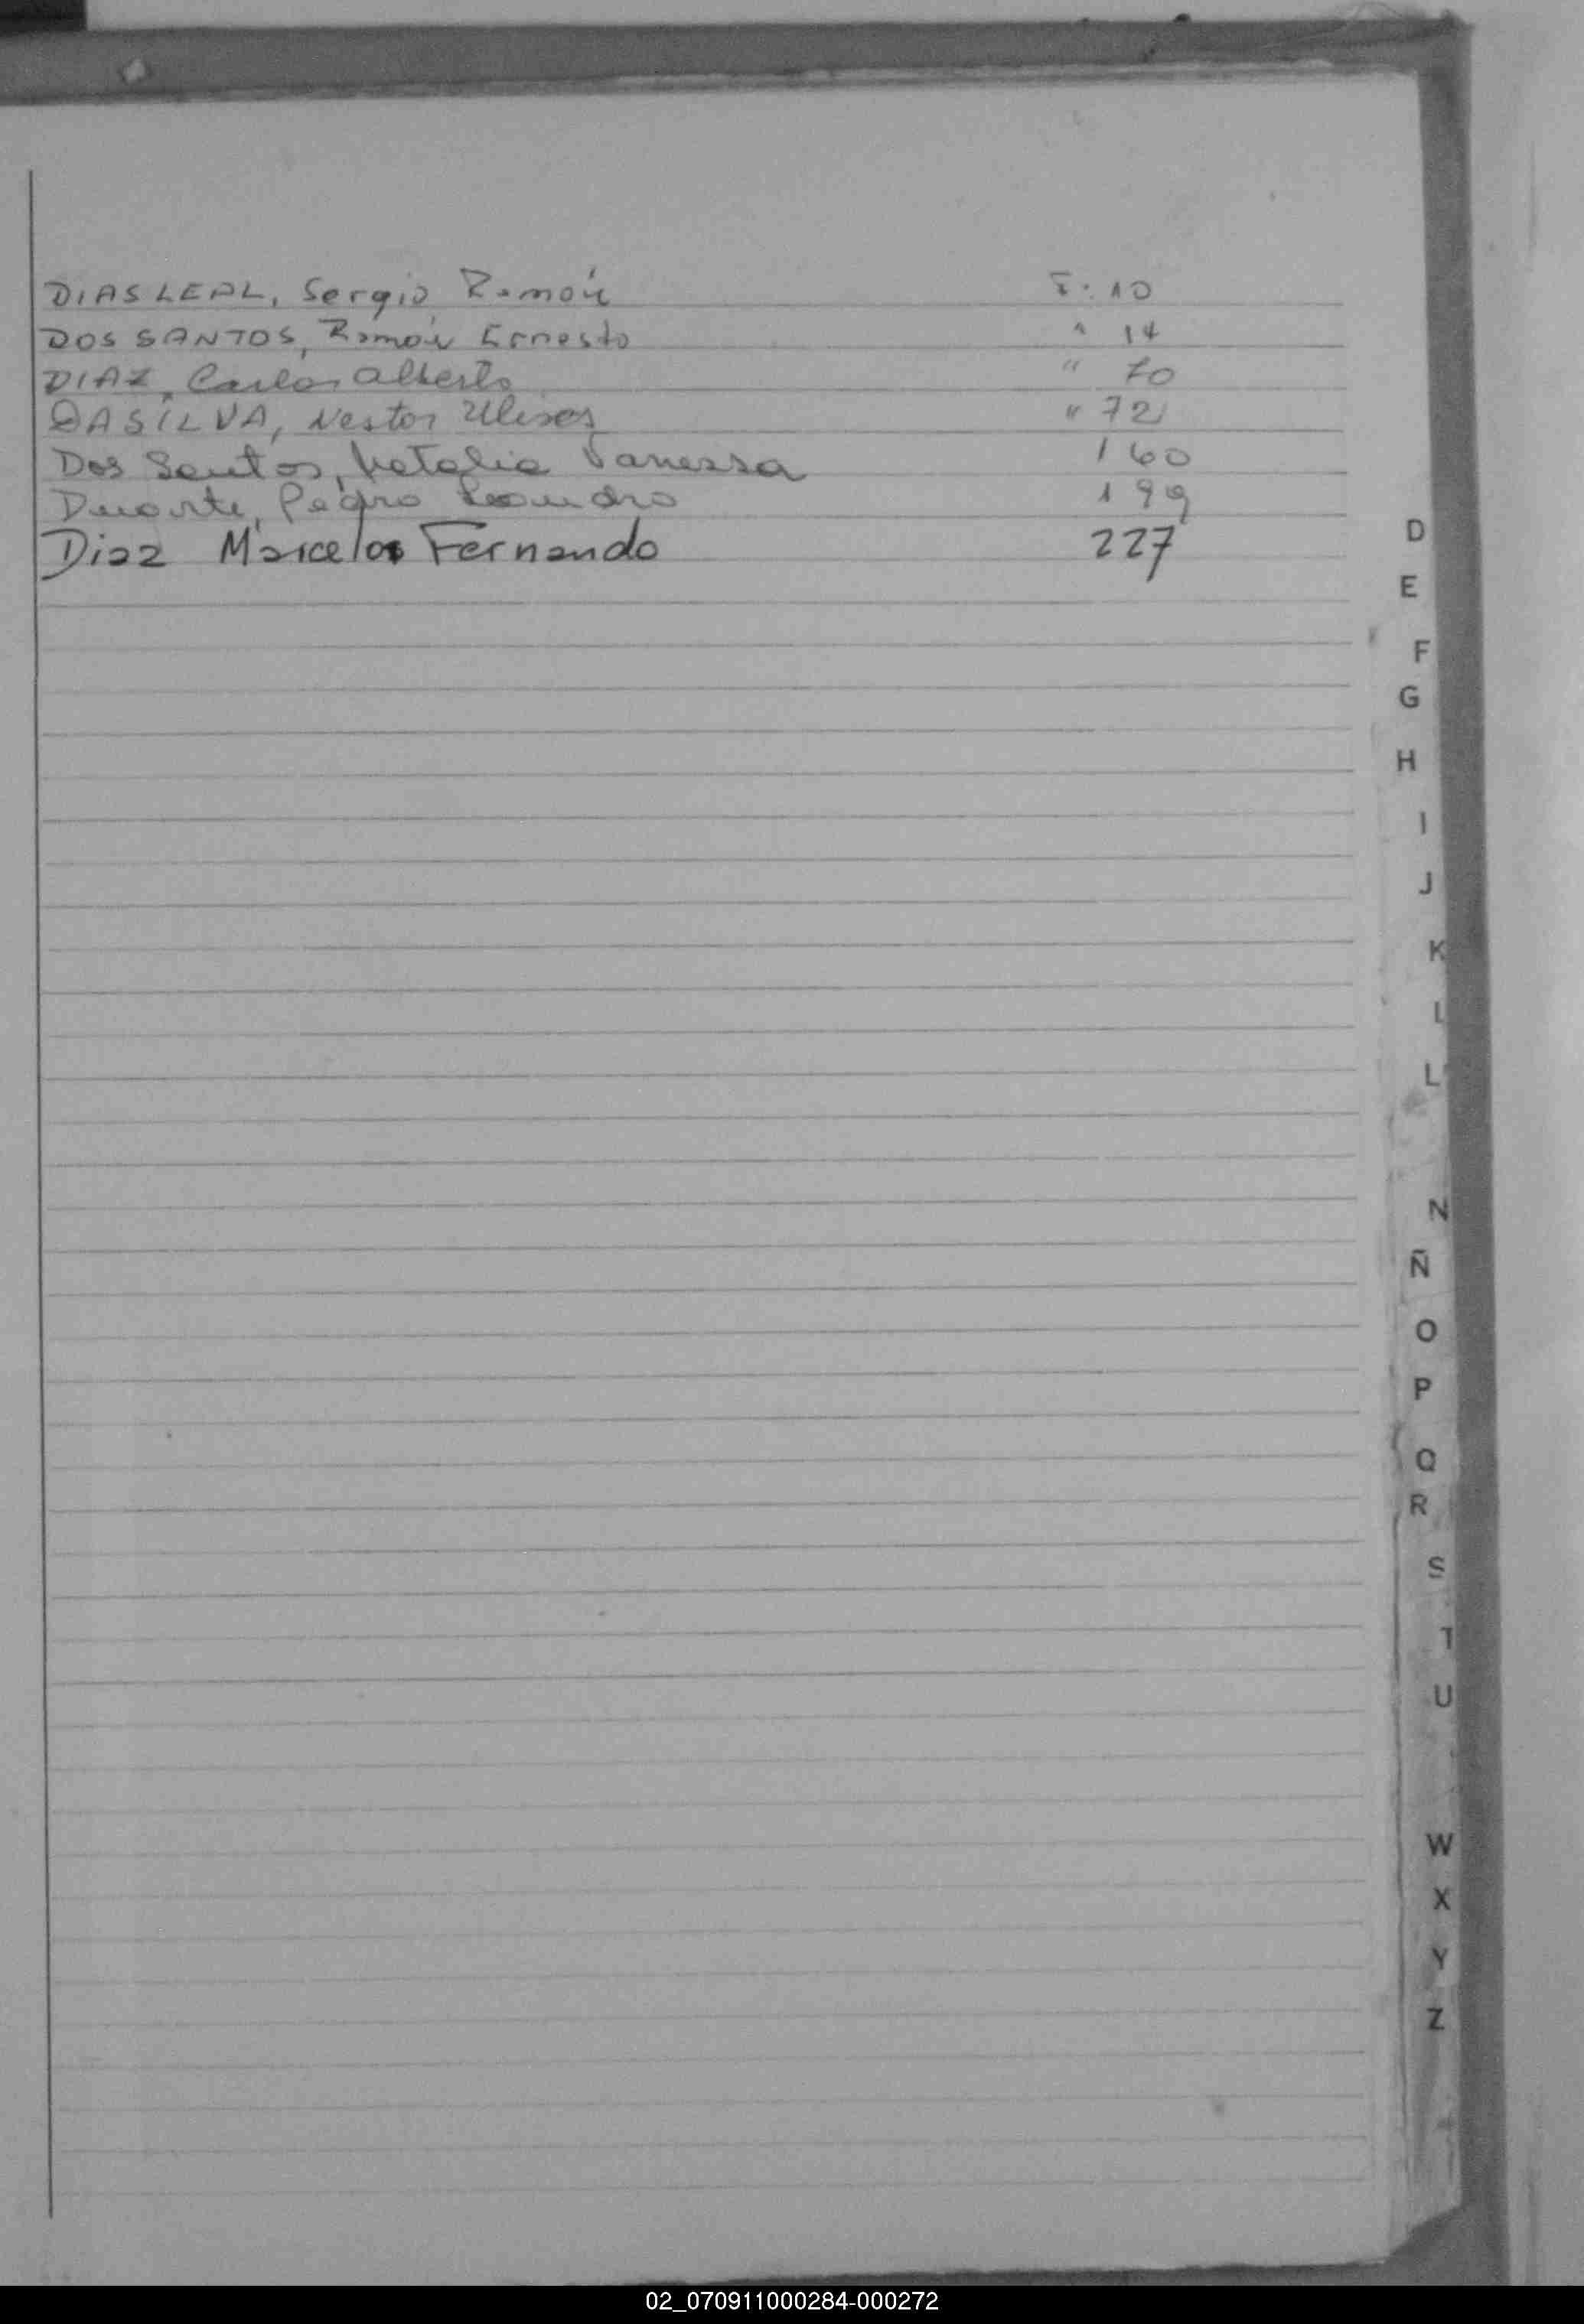 DIAS LEAL, Sergio Ramón F. 10
DOS SANTOS, Ramón Ernesto " 14
DIAZ, Carlos Alberto " 70
DASILVA, Nestor Ulises " 72
Dos Santos, Natalia Vanessa 160
Duarte, Pedro Leandro 199
Diaz Marcelo Fernando 227
D
E
F
G
H
I
J
K
L
L
N
Ñ
O
P
Q
R
S
T
U
W
X
Y
Z
02_070911000284-000272